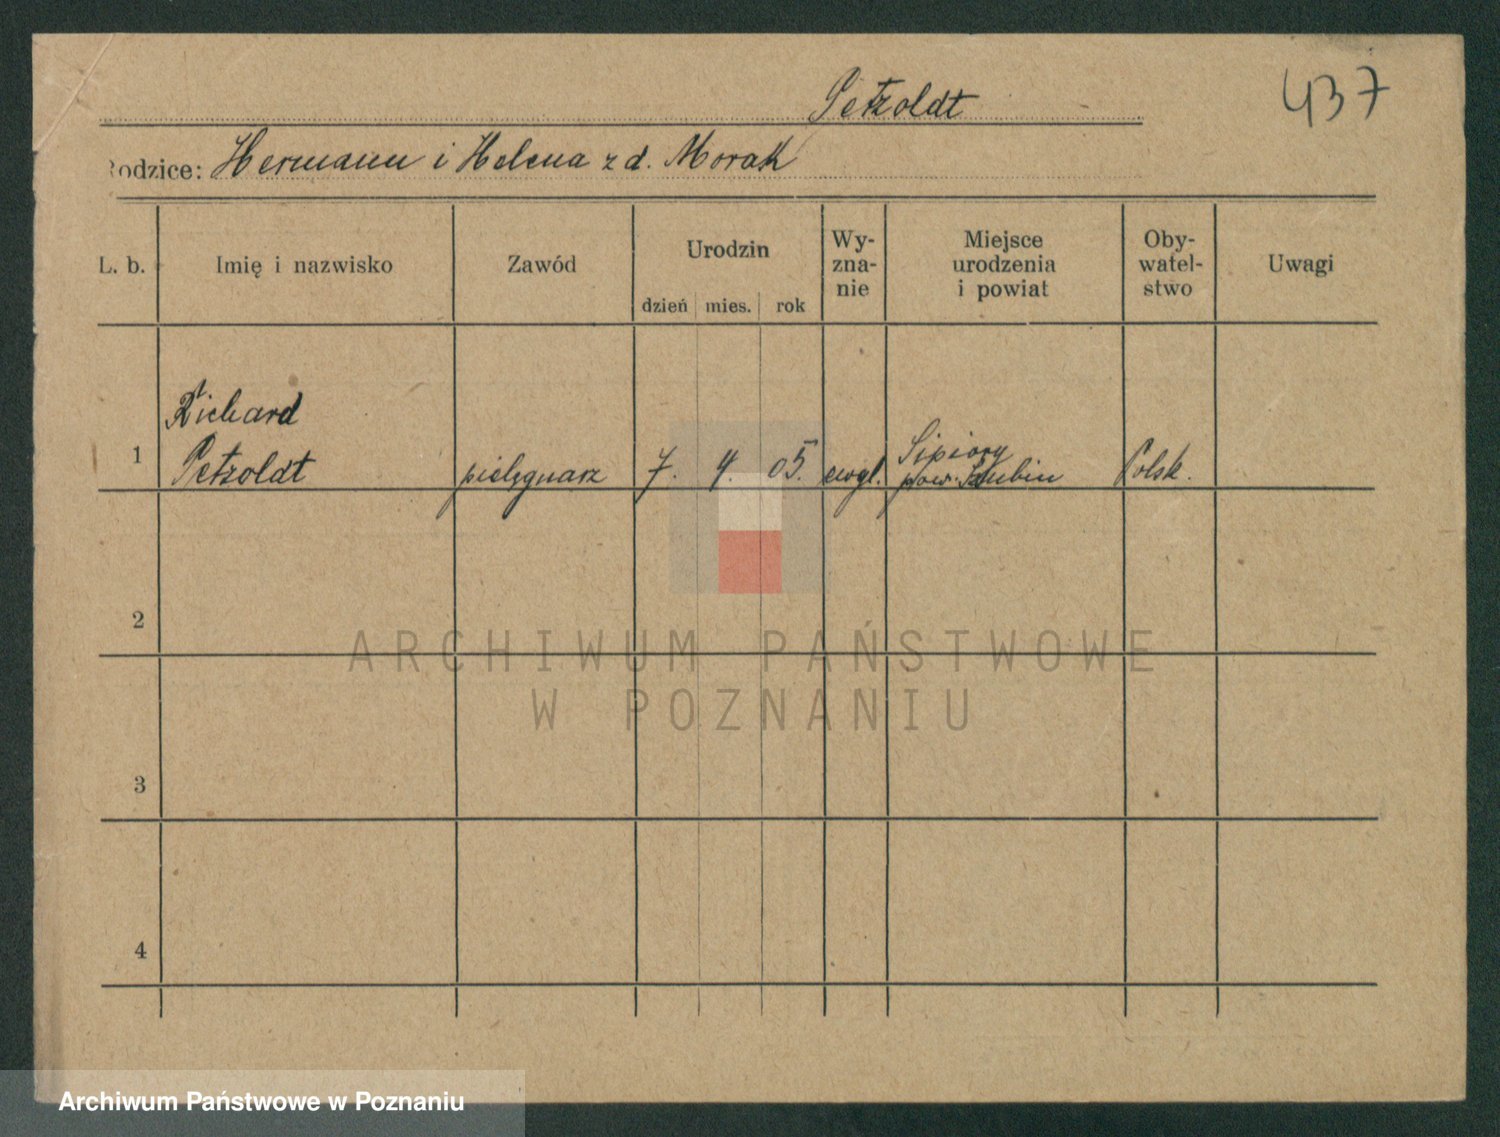 437
Petzoldt
Rodzice: Hermann i Helena z d. Morak
L. b.
Imię i nazwisko
Zawód
Urodzin
dzień
mies.
rok
Wy-
zna-
nie
Miejsce
urodzenia
i powiat
Oby-
watel-
stwo
Uwagi
1
Richard
Petzoldt
pielęgnarz
7.
4.
05.
ewgl.
Sipiory
pow. Szubin
Polsk.
2
3
4
ARCHIWUM PAŃSTWOWE
W POZNANIU
Archiwum Państwowe w Poznaniu